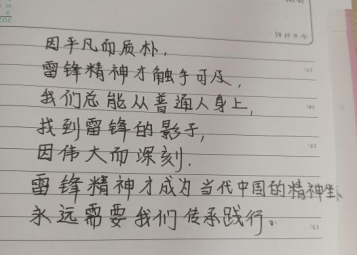 因平凡而质朴,
雷锋精神才触手可及,
我们总能从普通人身上,
找到雷锋的影子,
因伟大而深刻.
雷锋精神才成为当代中国的精神坐
永远需要我们传承践行。